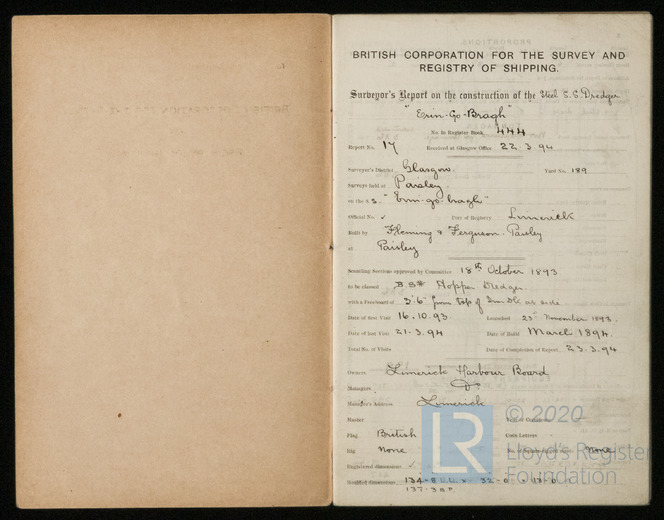 BRITISH CORPORATION FOR THE SURVEY AND
REGISTRY OF SHIPPING.
Surveyor's Report on the construction of the Steel S.S. Dredger
"Erin-Go-Bragh"
No. in Register Book 444
Report No. 17 Received at Glasgow Office 22.3.94
Surveyor's District Glasgow. Yard No. 189
Surveys held at Paisley
on the S.S. "Erin-go-bragh"
Official No. Port of Registry Limerick
Built by Fleming & Ferguson. Paisley
at Paisley
Scantling Sections approved by Committee 18th October 1893
to be classed B.S* Hopper Dredger
with a Freeboard of 3'6" from top of at side
Date of first Visit 16.10.93 Launched 23rd November 1893.
Date of last Visit 21.3.94 Date of Build March 1894.
Total No. of Visits Date of Completion of Report 23.3.94
Owners Limerick Harbour Board
Managers Do
Manager's Address Limerick
Master
Flag British Code Letters
Rig None None
Registered dimensions
134-8 32-0
137-3 B.P.
LR © 2020
Lloyd's Register
Foundation